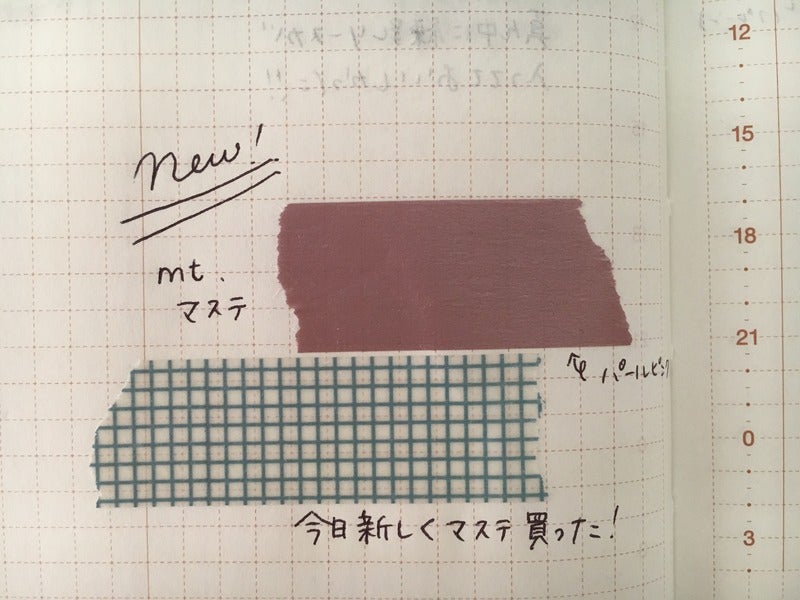 New!
mt.
マステ
パールピンク
今日新しくマステ買った!
12
15
18
21
0
3